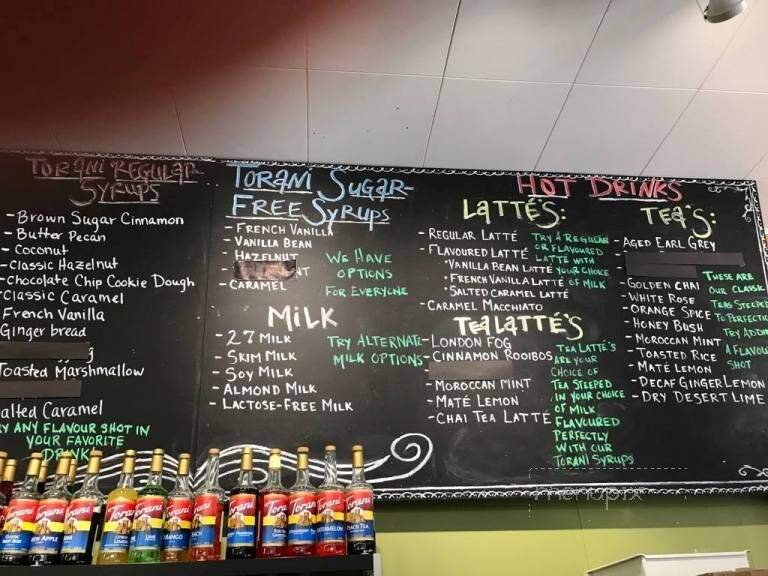 TORANI REGULAR
SYRUPS
- Brown Sugar Cinnamon
- Butter Pecan
- Coconut
- Classic Hazelnut
- Chocolate Chip Cookie Dough
Classic Caramel
French Vanilla
Ginger bread
Toasted Marshmallow
alted Caramel
Y ANY FLAVOUR SHOT IN
YOUR FAVORITE
DRINK
TORANI SUGAR-
FREE SYRUPS
- FRENCH VANILLA
- VANILLA BEAN
- HAZELNUT
- NT
- CARAMEL
WE HAVE
OPTIONS
FOR EVERYONE
MILK
- 2% MILK
- SKIM MILK
- SOY MILK
- ALMOND MILK
- LACTOSE-FREE MILK
TRY ALTERNATE
MILK OPTIONS
HOT DRINKS
LATTÉ'S:
- REGULAR LATTÉ
- FLAVOURED LATTÉ
*VANILLA BEAN LATTÉ
*FRENCH VANILLA LATTÉ
*SALTED CARAMEL LATTÉ
- CARAMEL MACCHIATO
TRY A REGULAR
OR FLAVOURED
LATTÉ WITH
YOUR CHOICE
OF MILK
TEA LATTÉ'S
- LONDON FOG
- CINNAMON ROOIBOS
- MOROCCAN MINT
- MATÉ LEMON
- CHAI TEA LATTÉ
TEA LATTÉ'S
ARE YOUR
CHOICE OF
TEA STEEPED
IN YOUR CHOICE
OF MILK
FLAVOURED
PERFECTLY
WITH OUR
TORANI SYRUPS
TEA'S:
- AGED EARL GREY
- GOLDEN CHAI
- WHITE ROSE
- ORANGE SPICE
- HONEY BUSH
- MOROCCAN MINT
- TOASTED RICE
- MATÉ LEMON
- DECAF GINGER LEMON
- DRY DESERT LIME
THESE ARE
OUR CLASSIC
TEAS STEEPED
TO PERFECTION
TRY ADDING
A FLAVOUR
SHOT
menupix
Torani
Torani
Torani
Torani
Torani
Torani
Torani
Torani
Torani
Torani
Torani
Torani
N APPLE
LIME
MANGO
WATERMELON
PEACH TEA